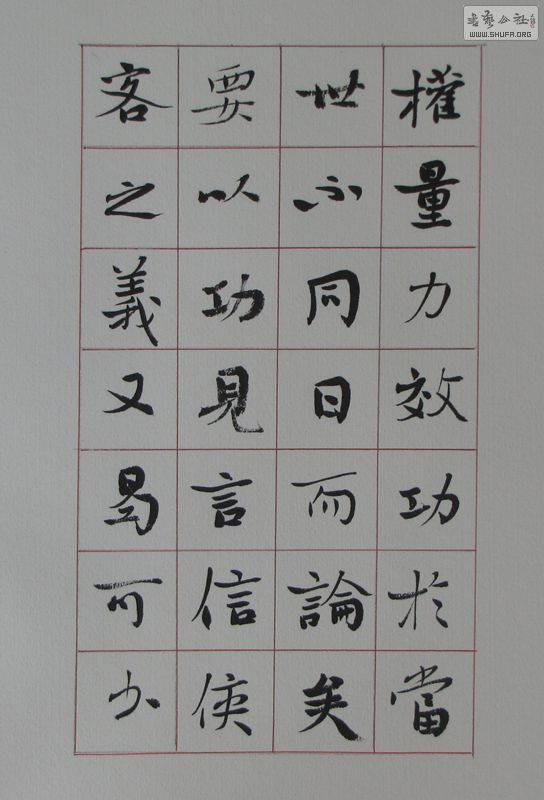 權量力效功於當
世不同日而論矣
要以功見言信俠
客之義又曷可少
書藝公社
WWW.SHUFA.ORG